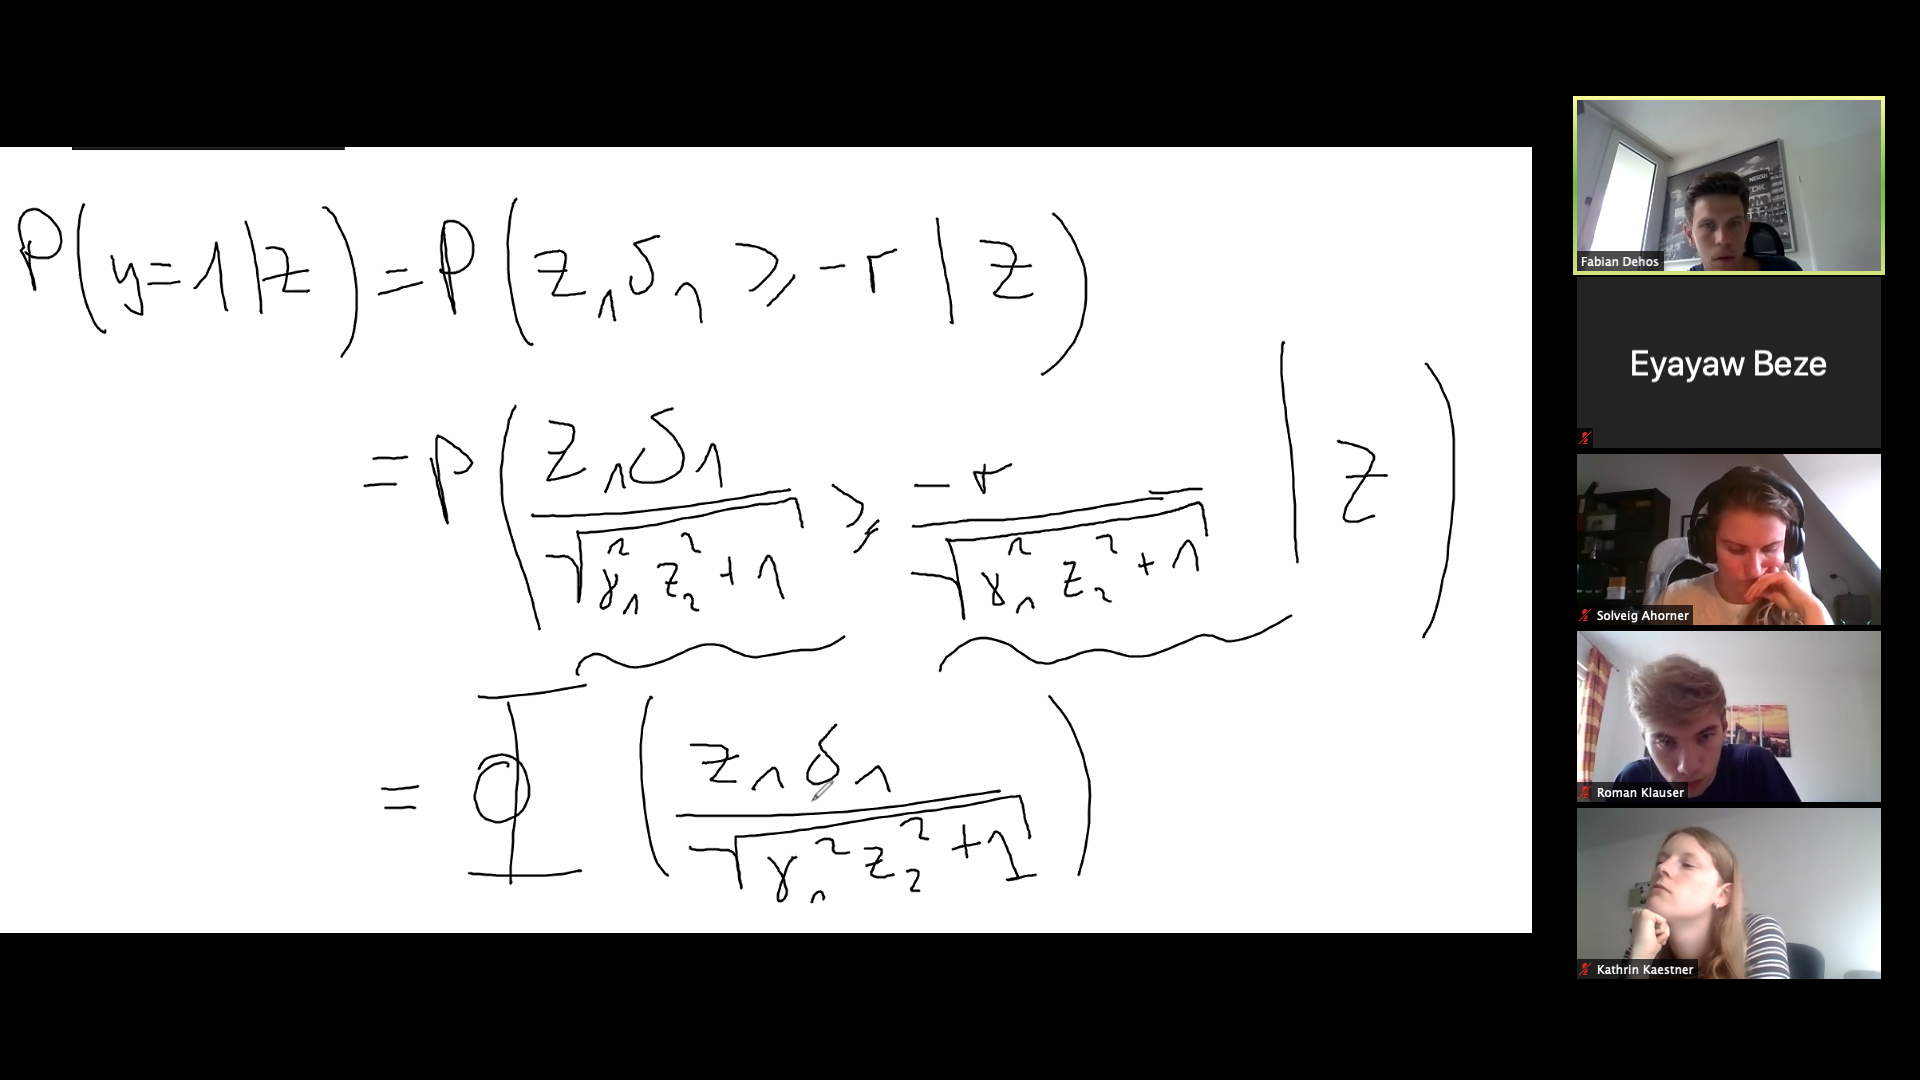 P(y=1|z) = P(z₁δ₁ ≥ -r | z)
= P(z₁δ₁ / √(γ₁² z₂² + 1) ≥ -r / √(γ₁² z₂² + 1) | z)
= Φ(z₁δ₁ / √(γ₁² z₂² + 1))
Fabian Dehos
Eyayaw Beze
Solveig Ahorner
Roman Klauser
Kathrin Kaestner